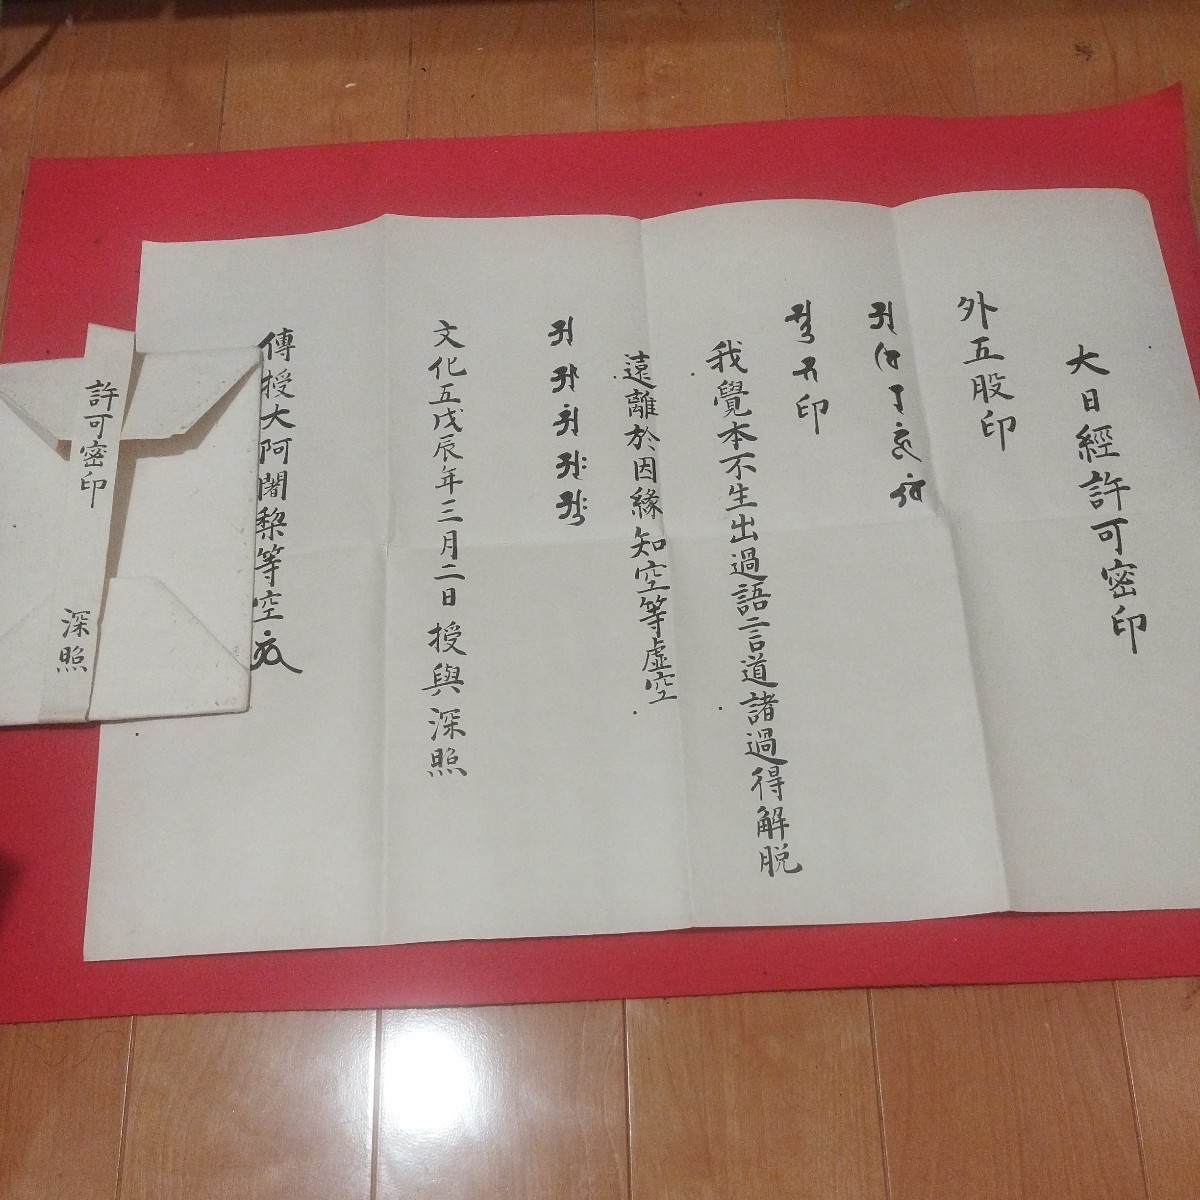 大日經許可密印
外五股印
印
我覺本不生出過語言道諸過得解脱
遠離於因緣知空等虛空
文化五戊辰年三月二日授與深照
傳授大阿闍梨等空
許可密印
深照